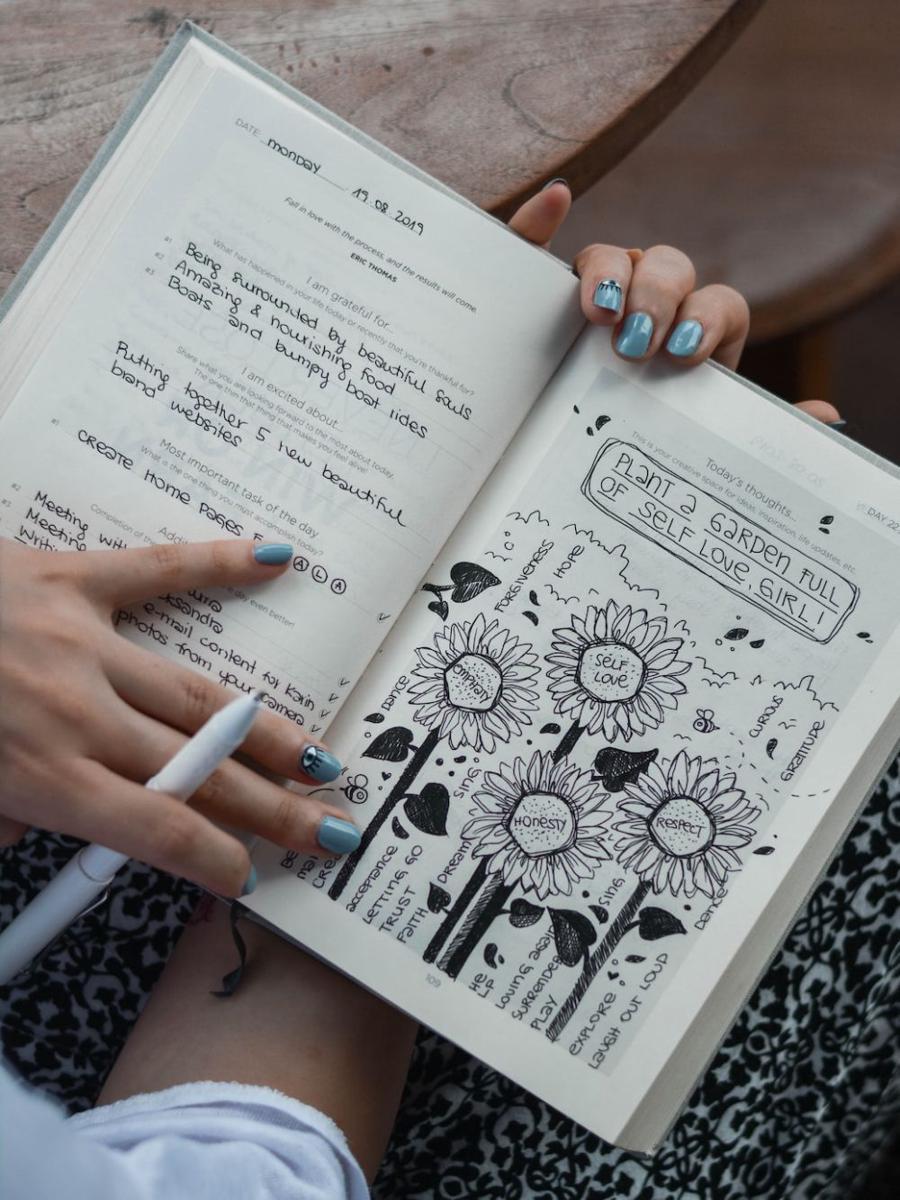 DATE: monday 19.08.2019
Fall in love with the process, and the results will come.
ERIC THOMAS
I am grateful for...
What has happened in your life today or recently that you're thankful for?
#1 Being surrounded by beautiful souls
#2 Amazing & nourishing food
#3 Boats and bumpy boat rides
I am excited about...
Share what you are looking forward to the most about today.
The one thing that makes you feel alive!
Putting together 5 new beautiful
brand websites
Most important task of the day
What is the one thing you must accomplish today?
#1 CREATE HOME PAGES
ALA
#2 Meeting
#3 Meeting
e-mail content for Karin
photos from your camera
day even better!
DAY 22
Today's thoughts...
This is your creative space for ideas, inspiration, life updates, etc.
PLANT A GARDEN FULL
OF SELF LOVE, GIRL!
FORGIVENESS
HOPE
SELF
LOVE
DANCE
CURIOUS
GRATITUDE
SING
HONESTY
RESPECT
acceptance
LETTING GO
TRUST
FAITH
DREAM
SING
DANCE
HELP
LOVING again
SURRENDER
PLAY
EXPLORE
LAUGH OUT LOUD
109